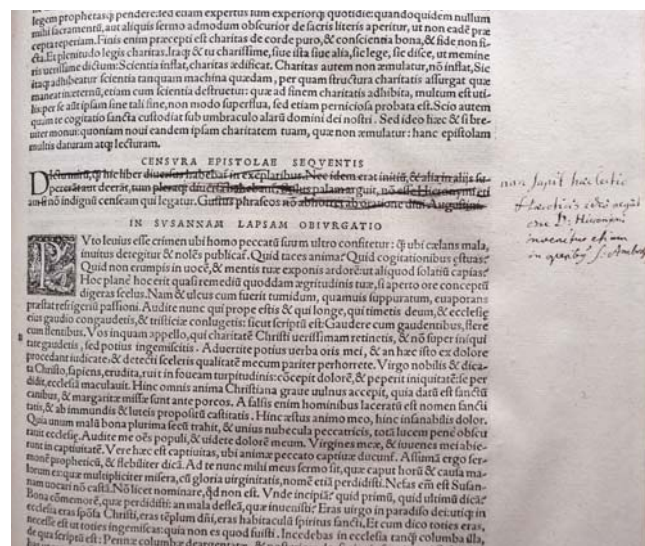 legem prophetasq́; pendere: sed etiam expertus sum experiorq́; quotidie: quandoquidem nullum
mihi sacramentũ, aut aliquis sermo admodum obscurior de sacris literis aperitur, ut non eadẽ præ
cepta reperiam. Finis enim præcepti est charitas de corde puro, & conscientia bona, & fide non fi-
cta. Et plenitudo legis charitas. Itaq; & tu charissime, siue ista siue alia, sic lege, sic disce, ut memine
ris uerissime dictum: Scientia inflat, charitas ædificat. Charitas autem non æmulatur, nõ inflat, Sic
itaq; adhibeatur scientia tanquam machina quædam, per quam structura charitatis assurgat quæ
maneat in æternũ, etiam cum scientia destruetur: quæ ad finem charitatis adhibita, multum est uti-
lis: per se aũt ipsam sine tali fine, non modo superflua, sed etiam perniciosa probata est. Scio autem
quam te cogitatio sancta custodiat sub umbraculo alarũ domini dei nostri. Sed ideo hæc & si bre-
uiter monui: quoniam noui eandem ipsam charitatem tuam, quæ non æmulatur: hanc epistolam
multis daturam atq; lecturam.
CENSVRA EPISTOLAE SEQVENTIS
hic liber diuersus habebat̃ in exemplaribus. Nec idem erat initiũ, & alia in alijs su-
tum pleraq́; diuersa habebant. Stylus palam arguit, nõ esse Hieronymi
nõ indignũ censeam qui legatur. Gustus phraseos nõ abhorret ab oratione diui Augustini.
non sapit
D. Hieronimi
inuenitur etiam
IN SVSANNAM LAPSAM OBIVRGATIO
PVto leuius esse crimen ubi homo peccatũ suum ultro confitetur: q̃ ubi cælans mala,
inuitus detegitur & nolẽs publicat̃. Quid taces anima? Quid cogitationibus æstuas?
Quid non erumpis in uocẽ, & mentis tuæ exponis ardorẽ: ut aliquod solatiũ capias?
Hoc planè hoc erit quasi remediũ quoddam ægritudinis tuæ, si aperto ore conceptũ
digeras scelus. Nam & ulcus cum fuerit tumidum, quamuis suppuratum, euaporans
præstat refrigeriũ passioni. Audite nunc qui prope estis & qui longe, qui timetis deum, & ecclesię
eius gaudio congaudetis, & tristiciæ conlugetis: sicut scriptũ est: Gaudere cum gaudentibus, flere
cum flentibus. Vos inquam appello, qui charitatẽ Christi uerissimam retinetis, & nõ super iniqui
tate gaudetis, sed potius ingemiscitis. Aduertite potius uerba oris mei, & an hæc isto ex dolore
procedant iudicate, & detecti sceleris qualitatẽ mecum pariter perhorrete. Virgo nobilis & dica-
ta Christo, sapiens, erudita, ruit in foueam turpitudinis: cõcepit dolorẽ, & peperit iniquitatẽ: se per
didit, ecclesiã maculauit. Hinc omnis anima Christiana graue uulnus accepit, quia datũ est sanctũ
canibus, & margaritæ missæ sunt ante porcos. A falsis enim hominibus laceratũ est nomen sancti
tatis, & ab immundis & luteis propositũ castitatis. Hinc æstus animo meo, hinc insanabilis dolor.
Quia unum malũ bona plurima secũ trahit, & unius nubecula peccatricis, totã lucem penè obscu
rauit ecclesię. Audite me oẽs populi, & uidete dolorẽ meum. Virgines meæ, & iuuenes mei abie-
runt in captiuitatẽ. Vere hæc est captiuitas, ubi animæ peccato captiuæ ducunt̃. Assumã ergo ser-
monẽ propheticũ, & flebiliter dicã. Ad te nunc mihi meus sermo sit, quæ caput horũ & causa ma-
lorum es: quæ multipliciter misera, cũ gloria uirginitatis, nomẽ etiã perdidisti. Nefas em̃ est Susan-
nam uocari nõ castã. Nõ licet nominare, qđ non est. Vnde incipiã? quid primũ, quid ultimũ dicã?
Bona cõmemorẽ, quæ perdidisti: an mala defleã, quæ inuenisti? Eras uirgo in paradiso dei: utiq; in
ecclesia eras spõsa Christi, eras tẽplum dñi, eras habitaculũ spiritus sancti, Et cum dico toties eras,
necesse est ut toties ingemiscas: quia non es quod fuisti. Incedebas in ecclesia tanq̃ columba illa,
de qua scriptũ est: Pennæ columbæ deargentatæ, &